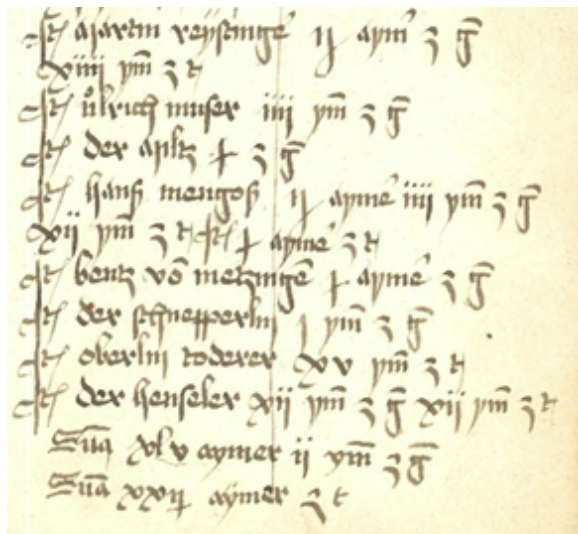 It martin reÿsinge ij aym̄ ꝫ g̅
xiiij ym̄ ꝫ t
It ůlrich muser iiij ym̄ ꝫ g̅
It der ꝫ g̅
It hanß mengoß ij ayme iiij ym̄ ꝫ g̅
xij ym̄ ꝫ t It j ayme ꝫ t
It bentz vō metzingē j ayme ꝫ g̅
It der schnepperlin j ym̄ ꝫ g̅
It oberlin roderer xv ym̄ ꝫ t
It der henseler xij ym̄ ꝫ g̅ xij ym̄ ꝫ t
Sūa xlv aymer ii ym̄ ꝫ g̅
Sūa xxij aymer ꝫ t